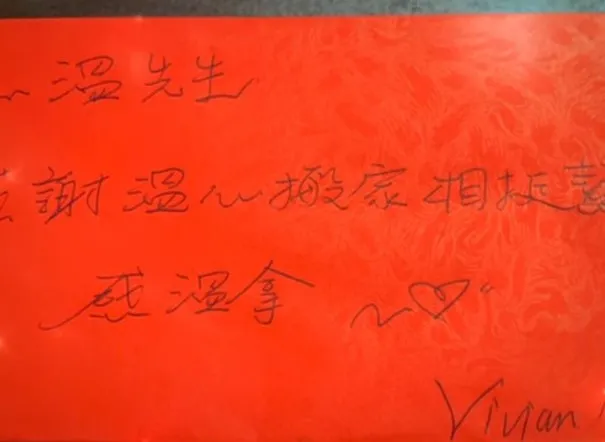 ~ 溫先生
感謝溫心搬家相挺
感溫拿 ~♡"
Vivian